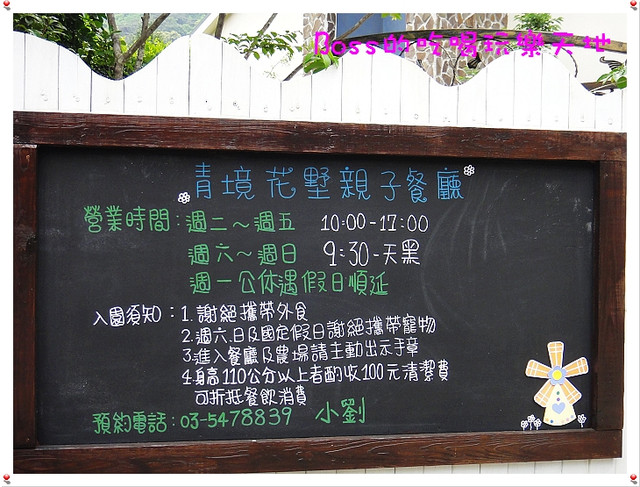 Boss的吃喝玩樂天地
青境花墅親子餐廳
營業時間：週二～週五 10:00-17:00
週六～週日 9:30-天黑
週一公休遇假日順延
入園須知：1.謝絕攜帶外食
2.週六.日及國定假日謝絕攜帶寵物
3.進入餐廳及農場請主動出示手章
4.身高110公分以上者酌收100元清潔費
可折抵餐飲消費
預約電話：03-5478839 小劉